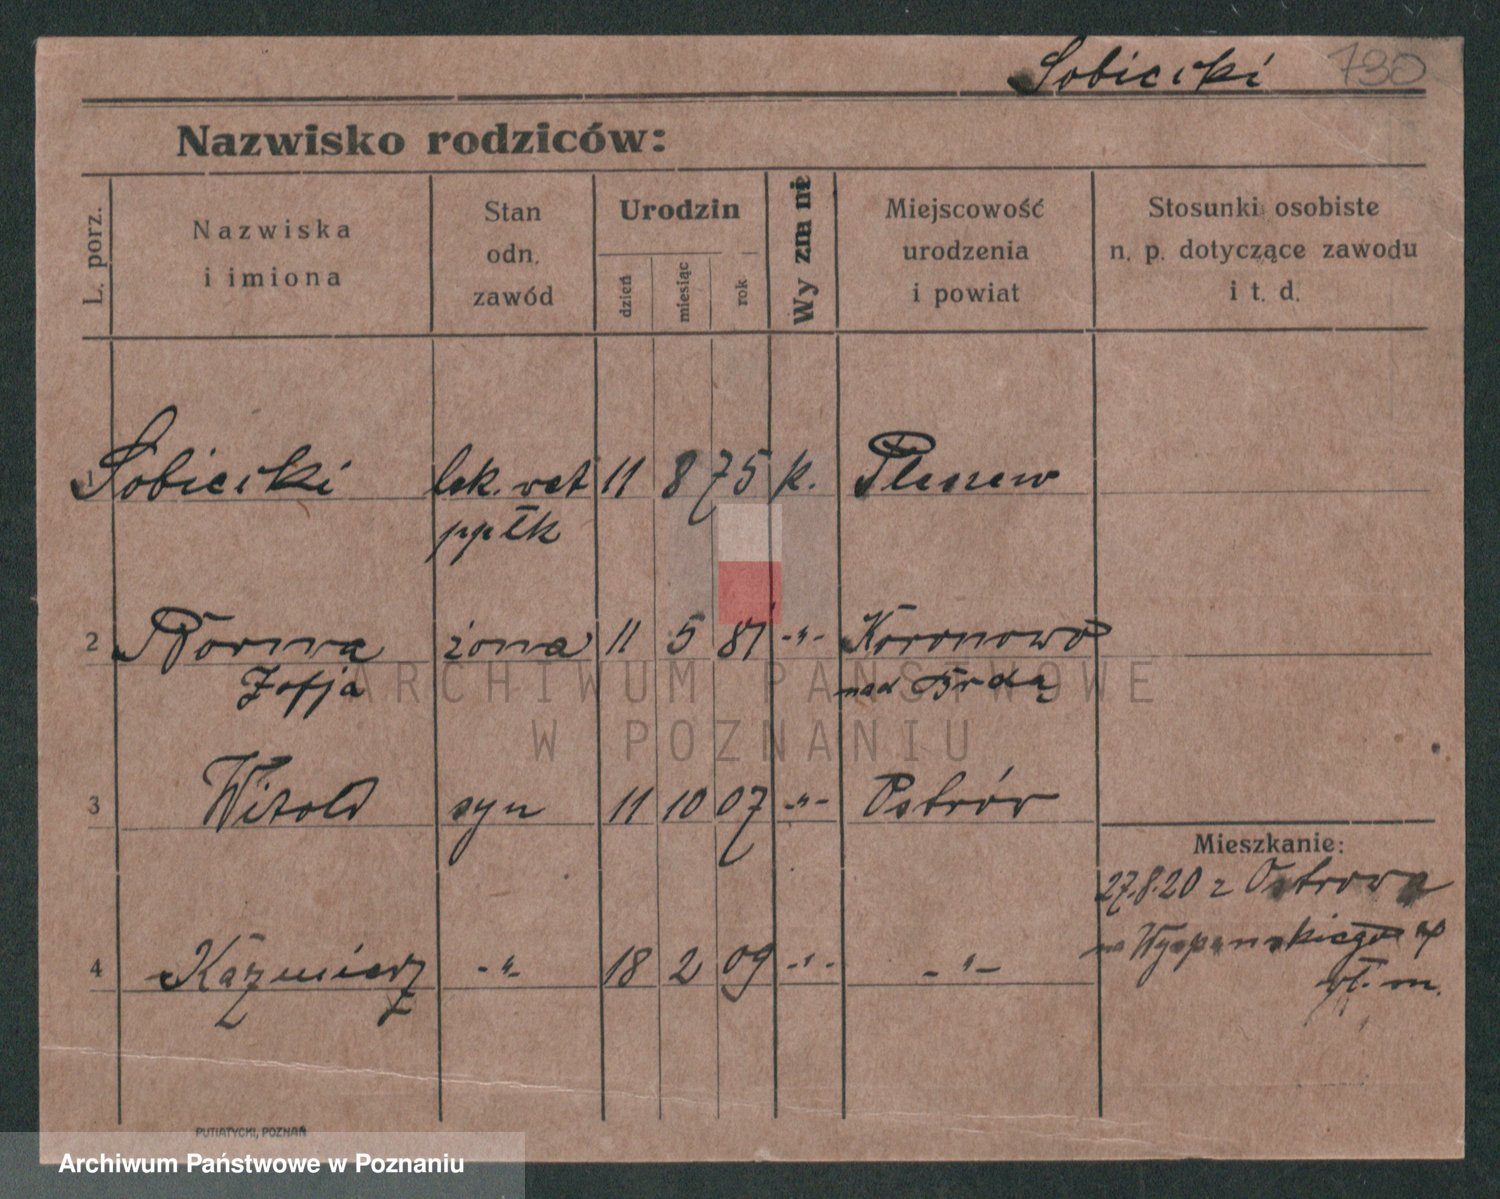 Sobiecki 730
Nazwisko rodziców:
L. porz.
Nazwiska
i imiona
Stan
odn.
zawód
Urodzin
dzień
miesiąc
rok
Wy zna nie
Miejscowość
urodzenia
i powiat
Stosunki osobiste
n. p. dotyczące zawodu
i t. d.
1 Sobiecki lek. wet 11 8 75 k. Pleszew
ppłk
2 żona 11 5 81 -"- Koronowo
Zofja nad Brdą
ARCHIWUM PAŃSTWOWE
W POZNANIU
3 Witold syn 11 10 07 -"- Ostrów
Mieszkanie:
27.8.20 z Ostrowa
na Wyspańskiego
4 Kazimierz -"- 18 2 09 -"- -"-
wł. m.
PUTIATYCKI, POZNAŃ
Archiwum Państwowe w Poznaniu